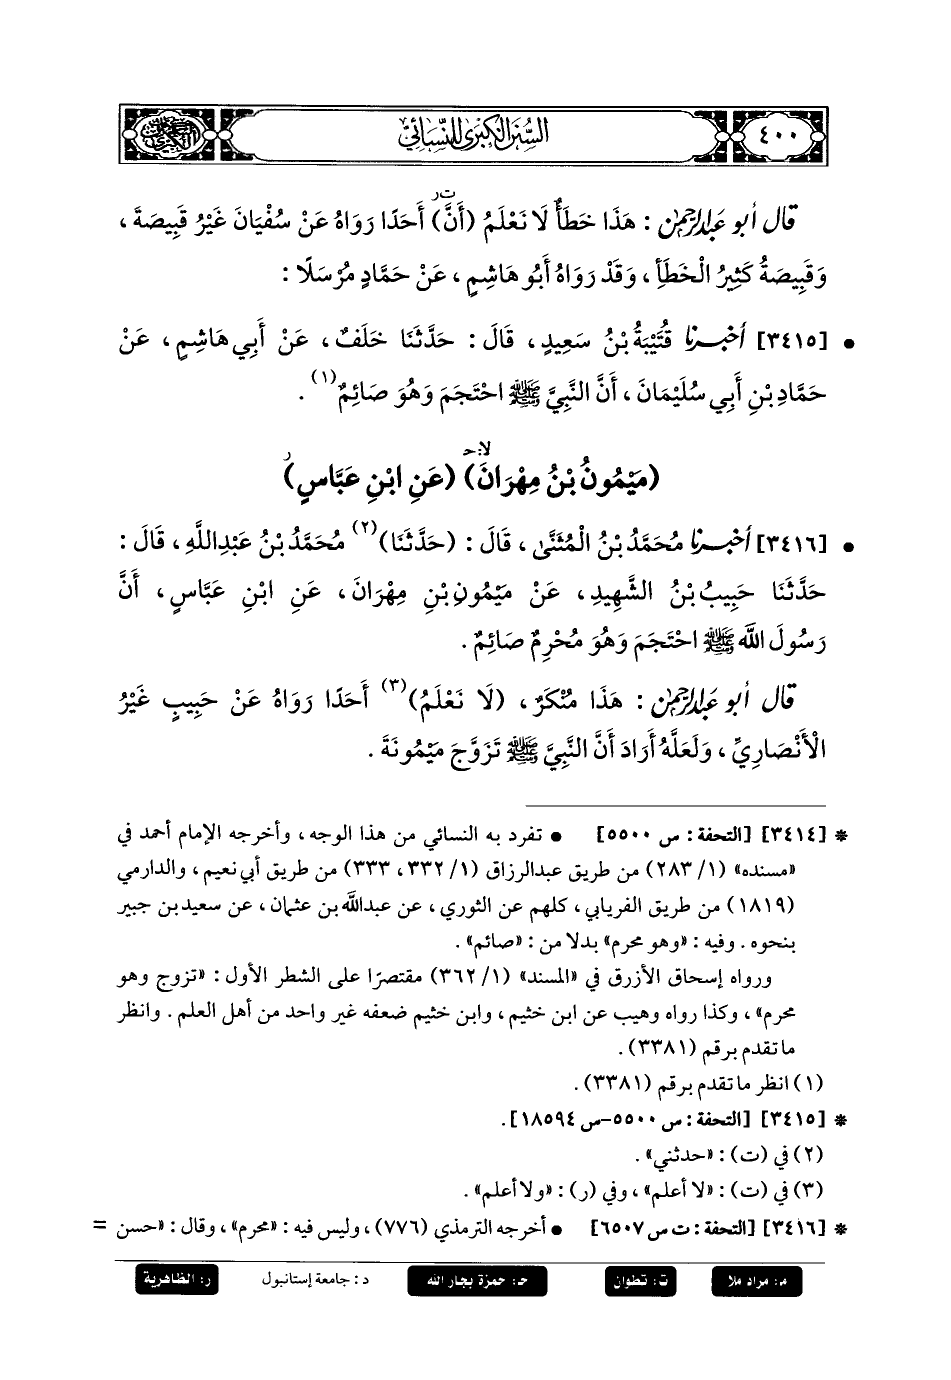 السنن الكبرى للنسائي
٤٠٠
ت ر
قال أبو عبدالرحمن : هَذَا خَطَأٌ لَا نَعْلَمُ (أَنَّ) أَحَدًا رَوَاهُ عَنْ سُفْيَانَ غَيْرُ قَبِيصَةَ ،
وَقَبِيصَةُ كَثِيرُ الْخَطَأِ ، وَقَدْ رَوَاهُ أَبُو هَاشِمٍ ، عَنْ حَمَّادٍ مُرْسَلًا :
• [٣٤١٥] أخبرنا قُتَيْبَةُ بْنُ سَعِيدٍ ، قَالَ : حَدَّثَنَا خَلَفٌ ، عَنْ أَبِي هَاشِمٍ ، عَنْ
حَمَّادِ بْنِ أَبِي سُلَيْمَانَ ، أَنَّ النَّبِيَّ ﷺ احْتَجَمَ وَهُوَ صَائِمٌ (١) .
لا: حـ ر
(مَيْمُونُ بْنُ مِهْرَانَ) (عَنِ ابْنِ عَبَّاسٍ)
• [٣٤١٦] أخبرنا مُحَمَّدُ بْنُ الْمُثَنَّى ، قَالَ : (حَدَّثَنَا) (٢) مُحَمَّدُ بْنُ عَبْدِاللَّهِ ، قَالَ :
حَدَّثَنَا حَبِيبُ بْنُ الشَّهِيدِ ، عَنْ مَيْمُونِ بْنِ مِهْرَانَ ، عَنِ ابْنِ عَبَّاسٍ ، أَنَّ
رَسُولَ اللَّه ﷺ احْتَجَمَ وَهُوَ مُحْرِمٌ صَائِمٌ .
قال أبو عبدالرحمن : هَذَا مُنْكَرٌ ، (لَا نَعْلَمُ) (٣) أَحَدًا رَوَاهُ عَنْ حَبِيبٍ غَيْرُ
الْأَنْصَارِيِّ ، وَلَعَلَّهُ أَرَادَ أَنَّ النَّبِيَّ ﷺ تَزَوَّجَ مَيْمُونَةَ .
* [٣٤١٤] [التحفة : س ٥٥٠٠] • تفرد به النسائي من هذا الوجه ، وأخرجه الإمام أحمد في
«مسنده» (١/ ٢٨٣) من طريق عبدالرزاق (١/ ٣٣٢، ٣٣٣) من طريق أبي نعيم ، والدارمي
(١٨١٩) من طريق الفريابي ، كلهم عن الثوري ، عن عبدالله بن عثمان ، عن سعيد بن جبير
بنحوه . وفيه : «وهو محرم» بدلا من : «صائم» .
ورواه إسحاق الأزرق في «المسند» (١/ ٣٦٢) مقتصرًا على الشطر الأول : «تزوج وهو
محرم» ، وكذا رواه وهيب عن ابن خثيم ، وابن خثيم ضعفه غير واحد من أهل العلم . وانظر
ما تقدم برقم (٣٣٨١) .
(١) انظر ما تقدم برقم (٣٣٨١) .
* [٣٤١٥] [التحفة : س ٥٥٠٠-س ١٨٥٩٤] .
(٢) في (ت) : «حدثني» .
(٣) في (ت) : «لا أعلم» ، وفي (ر) : «ولا أعلم» .
* [٣٤١٦] [التحفة : ت س ٦٥٠٧] • أخرجه الترمذي (٧٧٦) ، وليس فيه : «محرم» ، وقال : «حسن =
م: مراد ملا ت: تطوان حـ: حمزة بجار الله د: جامعة إستانبول ر: الظاهرية